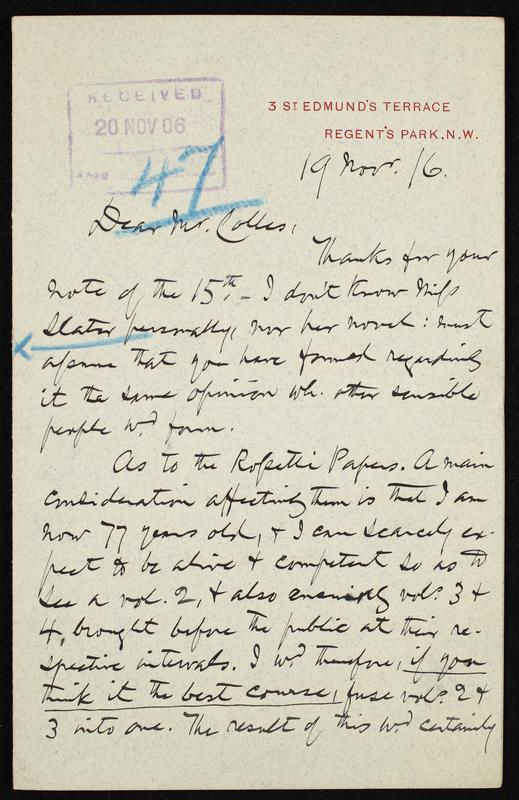 RECEIVED
20 NOV 06
47
3 ST EDMUND'S TERRACE
REGENT'S PARK. N.W.
19 Novr. /6.
Dear Mr. Colles,
Thanks for your
note of the 15th - I don't know Miss
Slater personally, nor her novel: must
assume that you have formed regarding
it the same opinion wh. other sensible
people wd form.
As to the Rossetti Papers. A main
consideration affecting them is that I am
now 77 years old, & I can scarcely ex-
pect to be alive & competent so as to
see a vol. 2, & also ensuing vols. 3 &
4, brought before the public at their re-
spective intervals. I wd therefore, if you
think it the best course, fuse vols. 2 &
3 into one. The result of this wd certainly